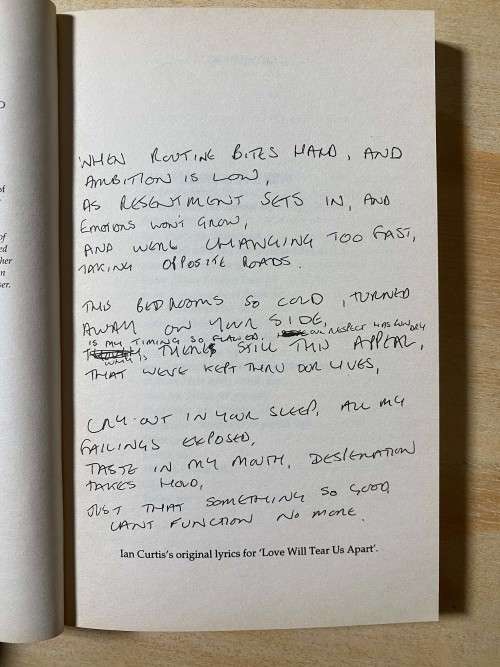 D
of
of
ed
her
n
ser.
WHEN ROUTINE BITES HARD, AND
AMBITION IS LOW,
AS RESENTMENT SETS IN, AND
EMOTIONS WONT GROW,
AND WERE CHANGING TOO FAST,
TAKING OPPOSITE ROADS.
THIS BEDROOMS SO COLD, TURNED
AWAY ON YOUR SIDE,
IS MY TIMING SO FLAWED, OUR RESPECT RUN DRY
WHY IS THERE STILL THIS APPEAL,
THAT WEVE KEPT THRU OUR LIVES,
CRY OUT IN YOUR SLEEP, ALL MY
FAILINGS EXPOSED,
TASTE IN MY MOUTH, DESPERATION
TAKES HOLD,
JUST THAT SOMETHING SO GOOD
CANT FUNCTION NO MORE.
Ian Curtis's original lyrics for 'Love Will Tear Us Apart'.